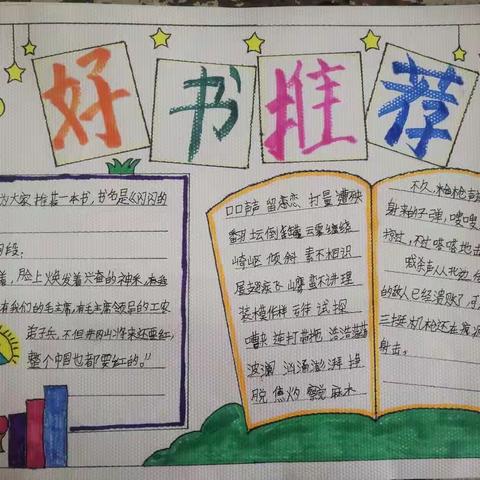 好书推荐
为大家推荐一本书,书名是《闪闪的
段:
着,脸上焕发着兴奋的神采,
有我们的毛主席,有毛主席领导的工农
弟子兵,不但井冈山将来还要红,
整个中国也都要红的。"
口口声声 留恋 打量 遭殃
翻坛倒罐 云雾缭绕
崎岖 倾斜 素不相识
尾 飞 蛮不讲理
装模作样 试探
嘈 连打带拖 浩浩荡荡
波澜 汹涌澎湃 挣
脱 焦灼 麻木
不久,枪枪
射来的子弹,嗖嗖
擦过,不过嗒嗒地击
喊杀声从北边
的敌人已经溃败了,可
三挺机枪还在
射击。